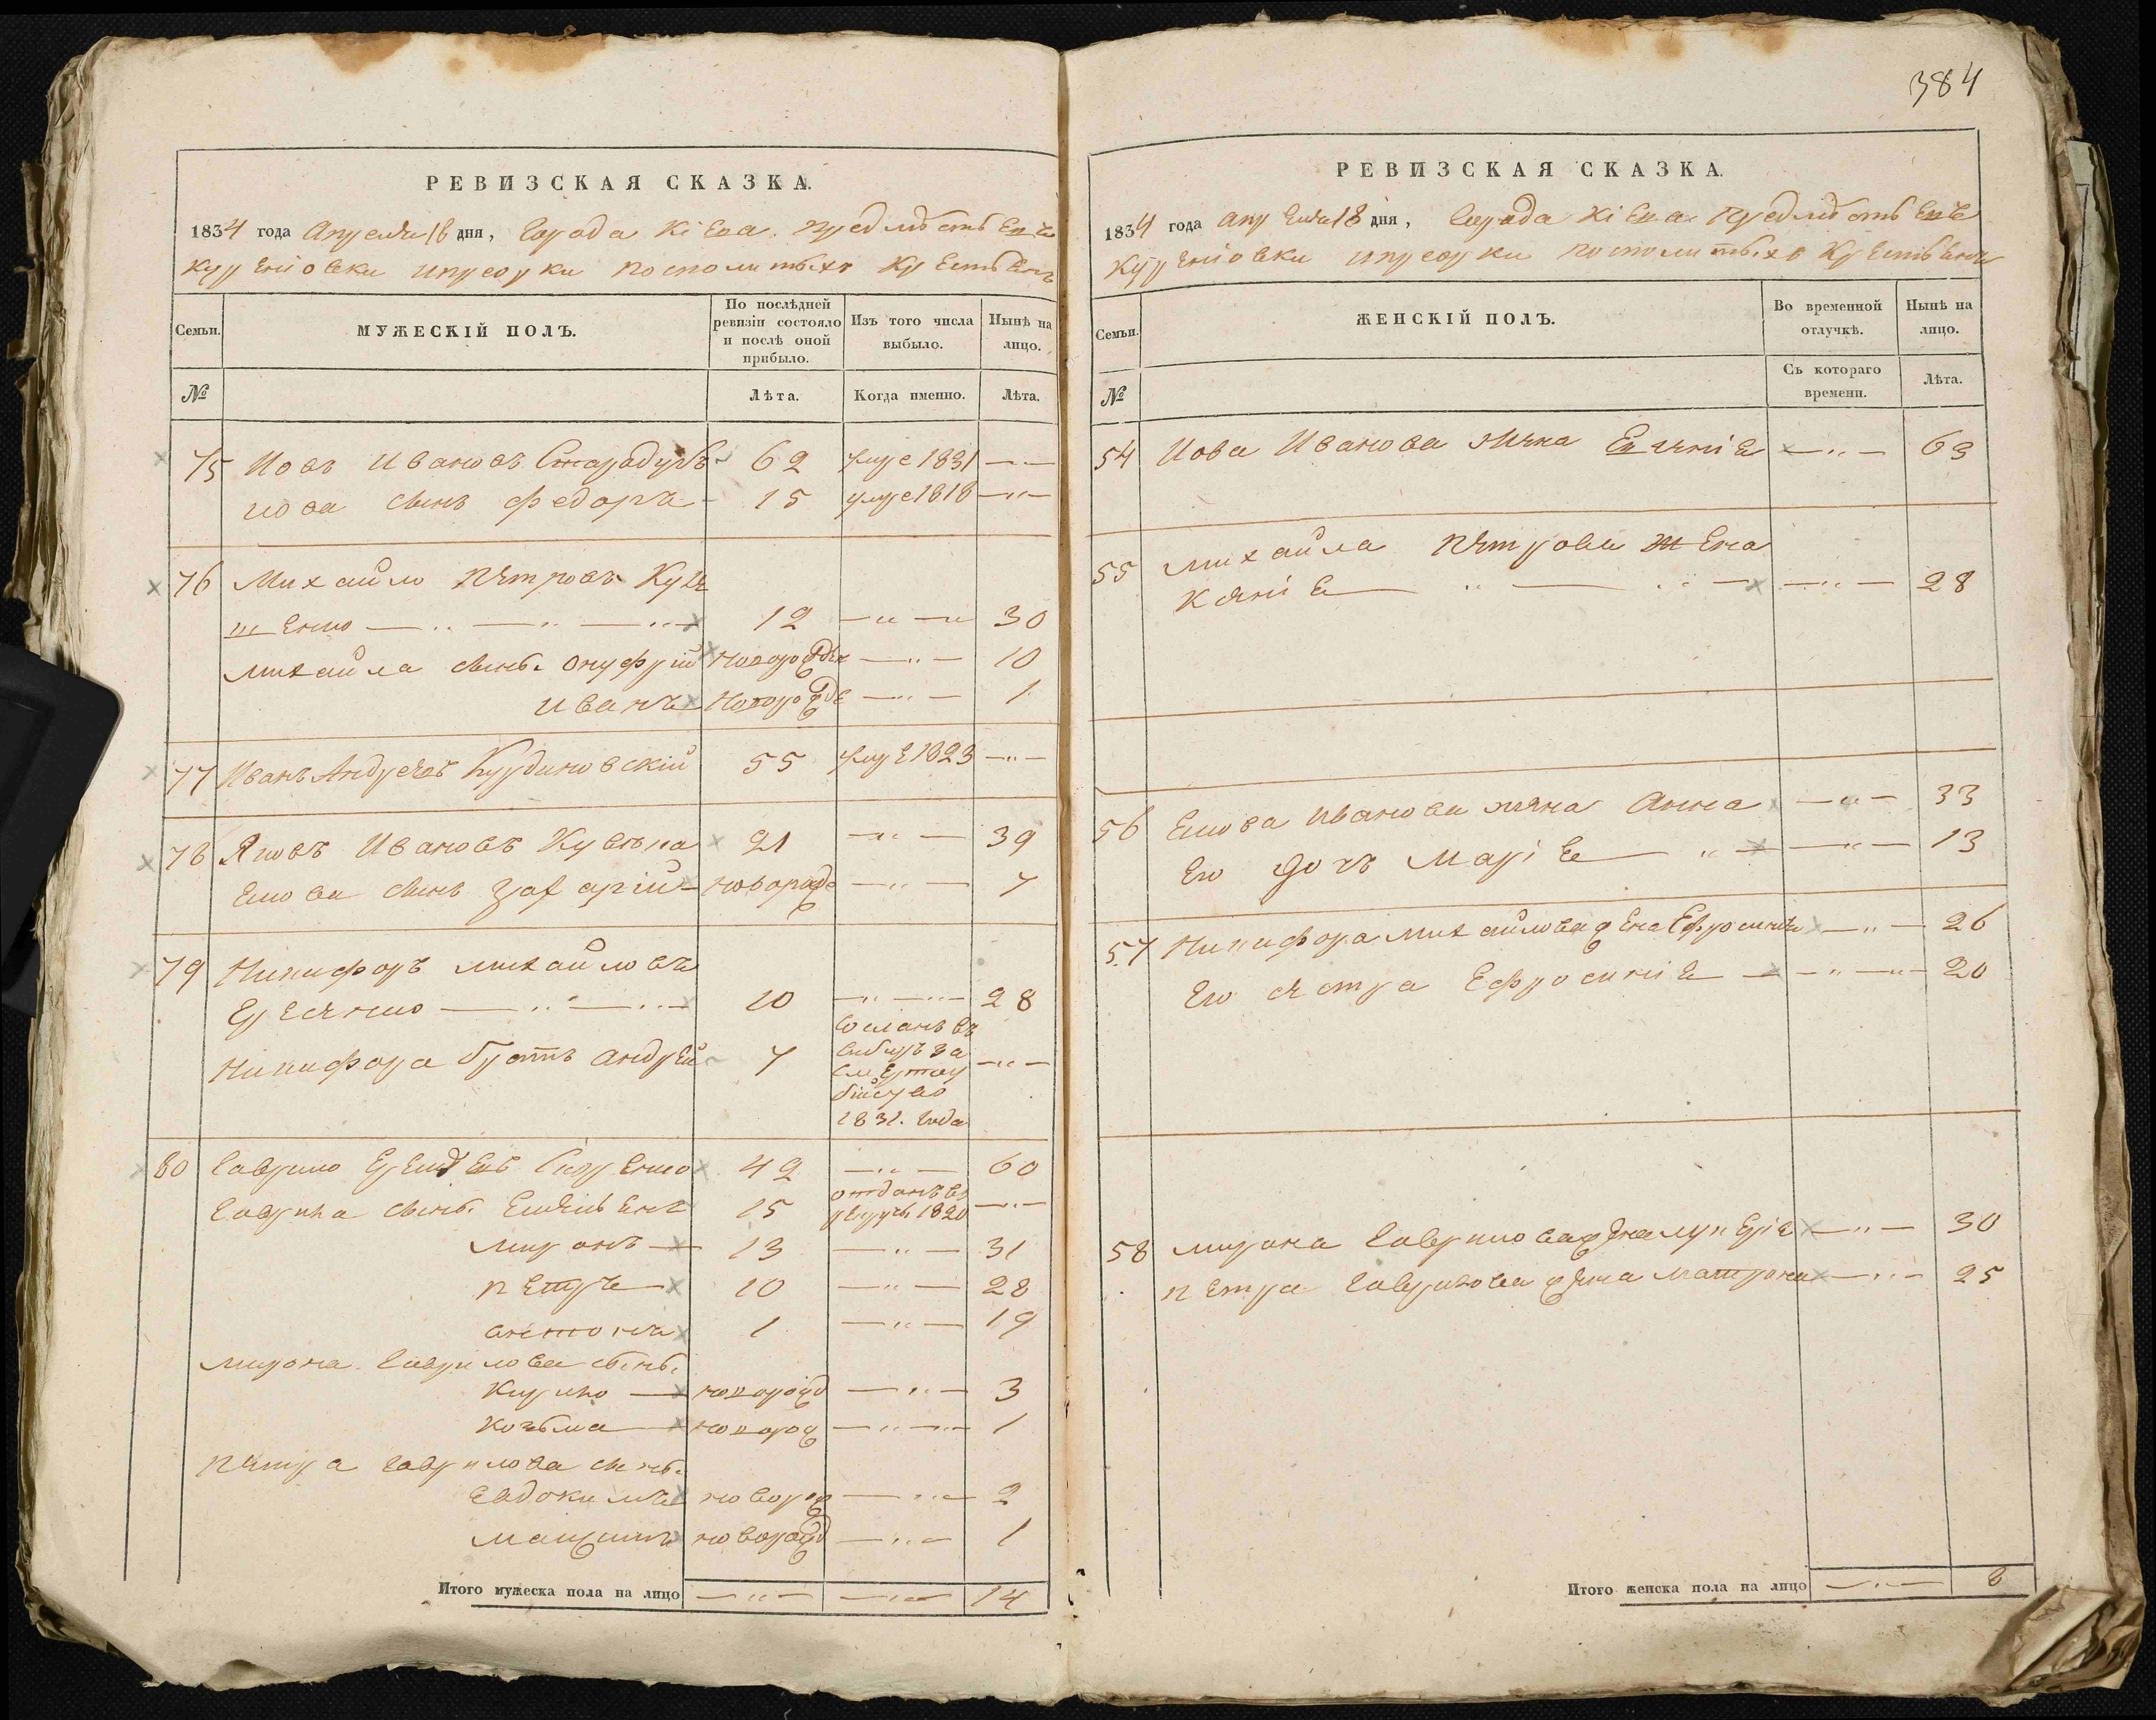 384
РЕВИЗСКАЯ СКАЗКА.
1834 года Апреля 18 дня, Города Кіева. предмѣстьевъ
Куренiовки иприорки посполитыхъ Крестьянъ
Семьи.
МУЖЕСКІЙ ПОЛЪ.
По послѣдней ревизіи состояло и послѣ оной прибыло.
Изъ того числа выбыло.
Нынѣ на лицо.
№
Лѣта.
Когда именно.
Лѣта.
75 Иовъ Ивановъ Стародубъ 62 умре 1831 —"—
иова сынъ Федоръ 15 умре 1818 —"—
76 Михайло Петровъ
12 —"—"— 30
михайла сынъ. Онуфрій новорожден —"— 10
иванъ новорожде —"— 1
77 Иванъ Андреевъ 55 умре 1823 —"—
78 Яковъ Ивановъ 21 —"— 39
Якова сынъ Захарій новорожде —"— 7
79 Никифоръ михайловъ
10 —"—"— 28
Никифора братъ андрей 7 Сосланъ въ —"—
сибирь за
смертоу
бійство
1831. года
80 Гаврило 42 —"— 60
Гаврила сынъ. Емельянъ 15 отданъ въ —"—
рекруты 1820
миронъ 13 —"— 31
петръ 10 —"— 28
антонъ 1 —"— 19
мирона Гаврилова сынъ.
Кирило новорожд —"— 3
козьма новорож —"—"— 1
петра гаврилова сынъ.
евдокимъ новорож —"— 2
максимъ новорожд —"— 1
Итого мужеска пола на лицо —"— —"— 14
РЕВИЗСКАЯ СКАЗКА.
1834 года апреля 18 дня, Города Кіева предмѣстьевъ
Куренiовки иприорки посполитыхъ Крестьянъ
Семьи.
ЖЕНСКІЙ ПОЛЪ.
Во временной отлучкѣ.
Нынѣ на лицо.
№
Съ котораго времени.
Лѣта.
54 Иова Иванова жена —"— 63
55 михайла петрова жена
Ксеніе —"— 28
56 Якова иванова жена Анна —"— 33
Его дочь Маріе —"— 13
57 Никифора михайлова жена Ефросинiе —"— 26
Его сестра Ефросиніе —"—"— 20
58 мирона Гаврилова жена лукеріе —"— 30
петра Гаврилова жена матрона —"— 25
Итого женска пола на лицо —"— 8